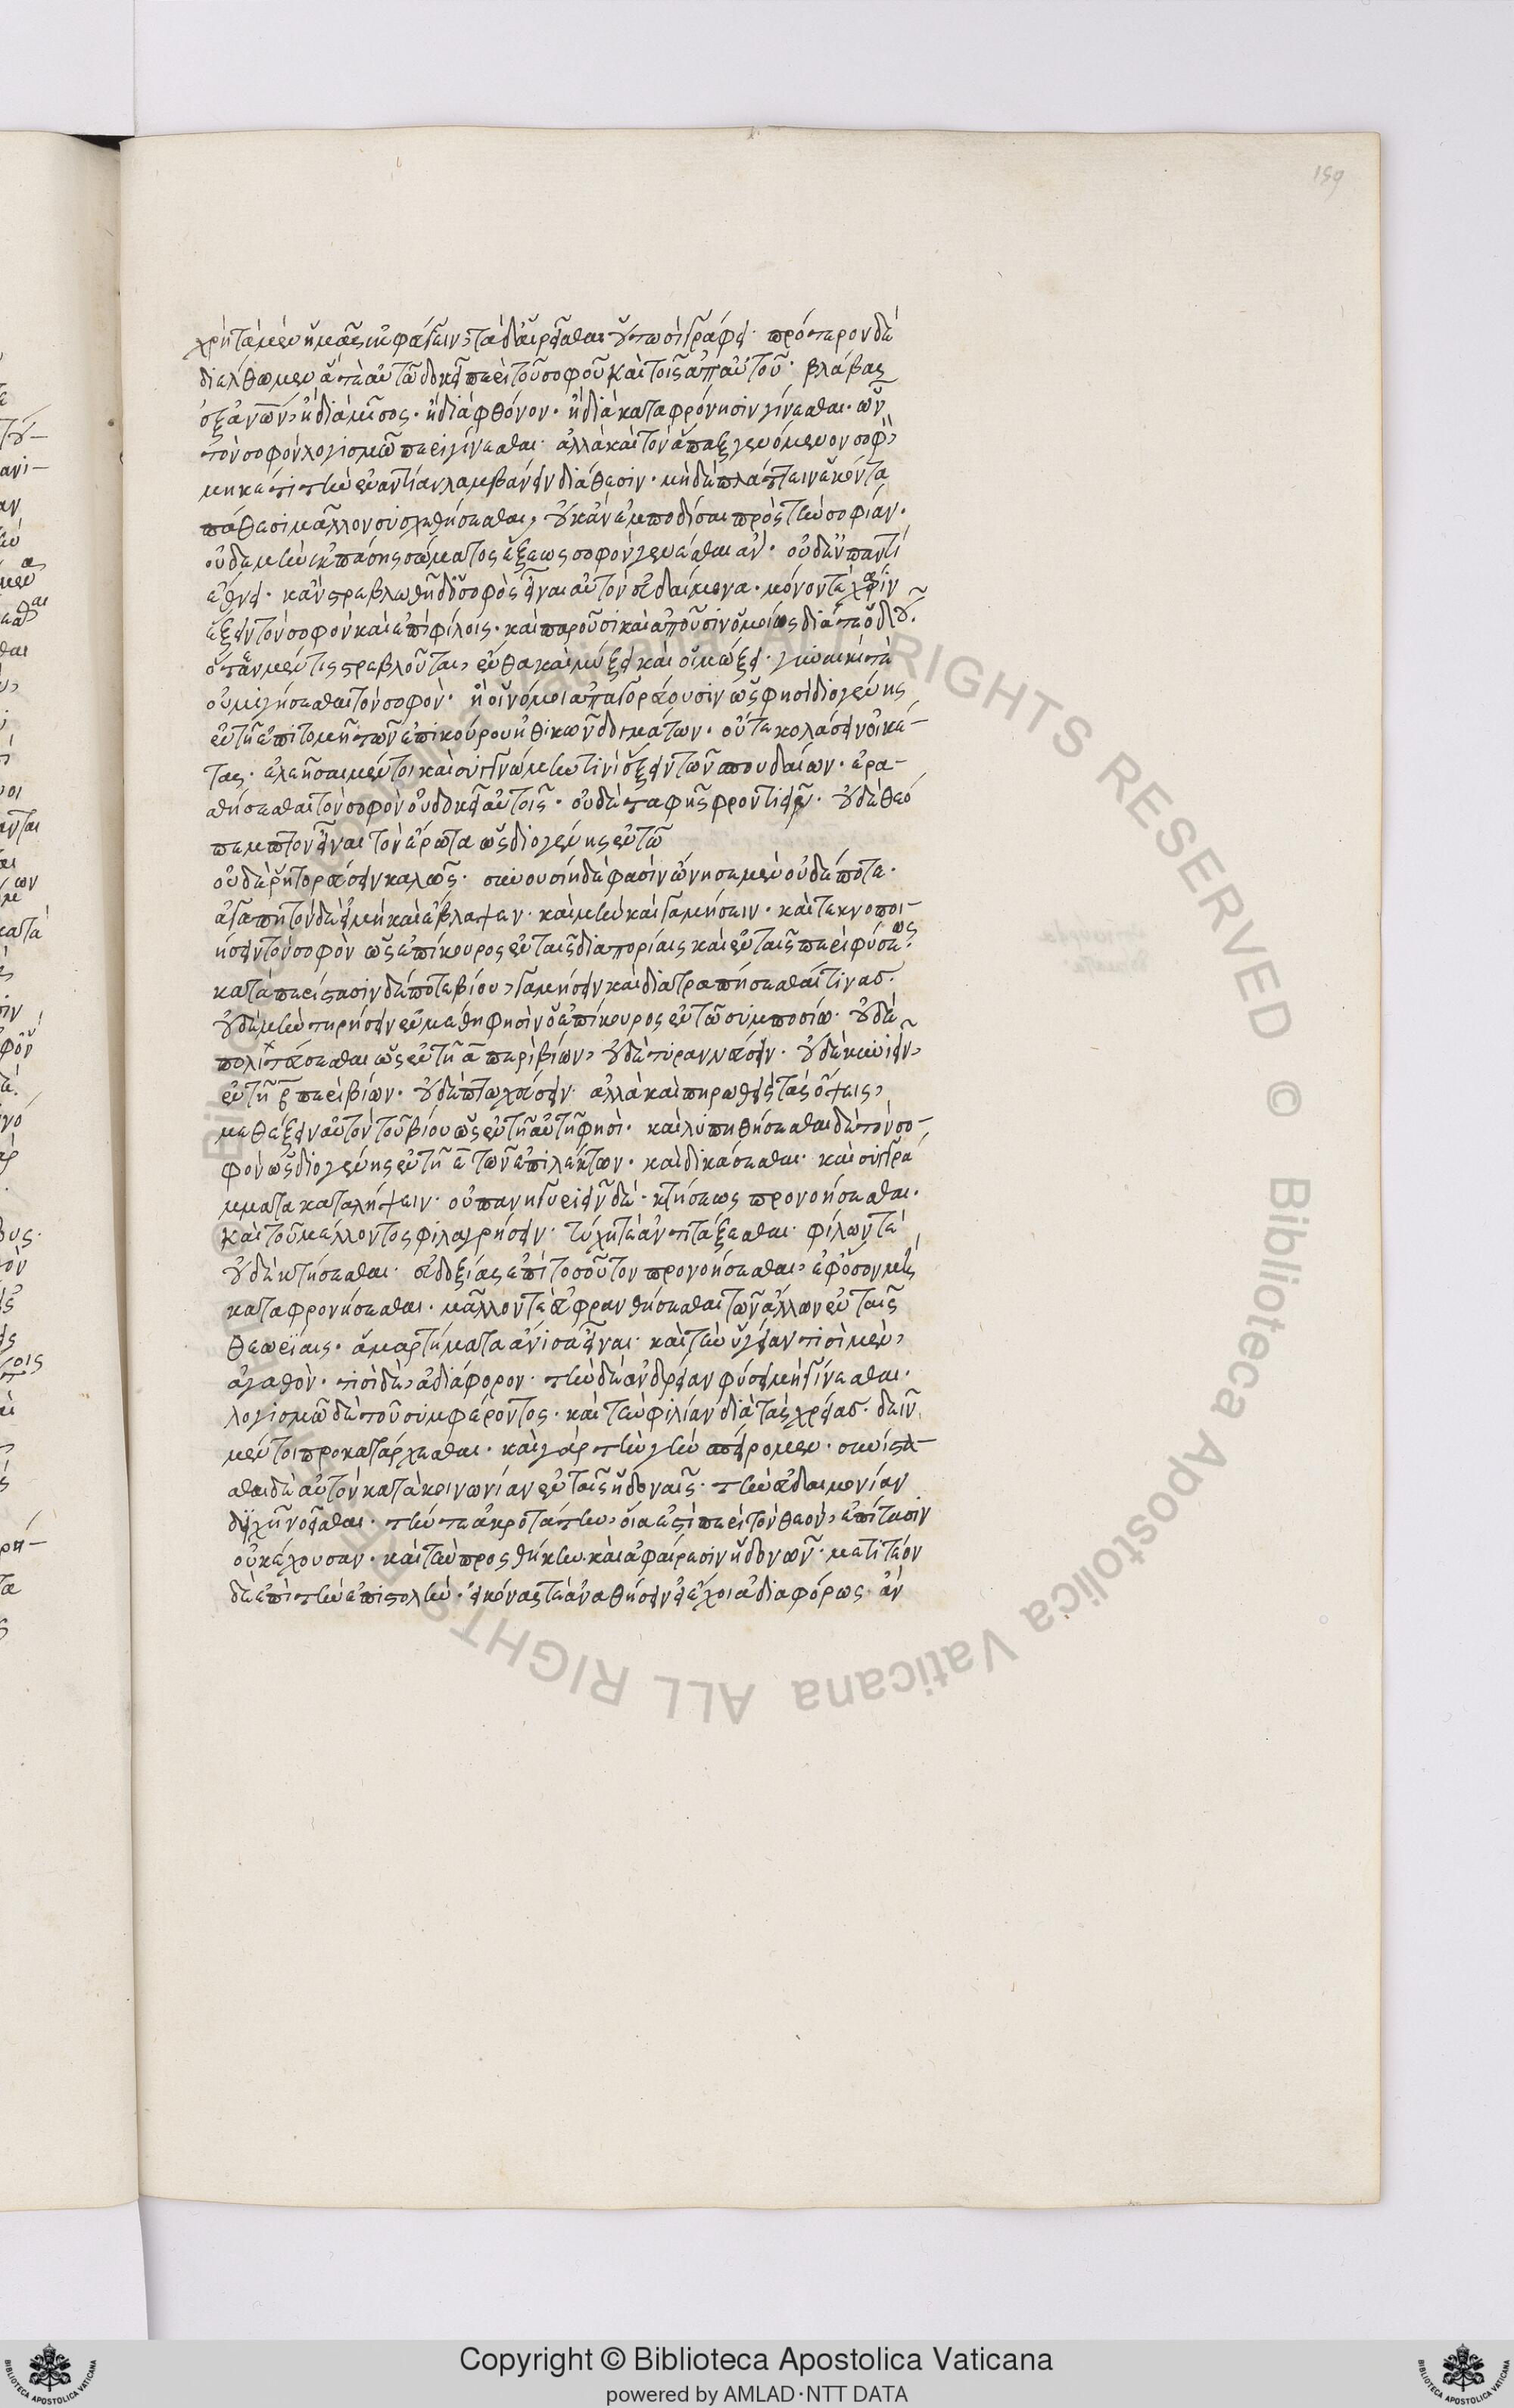 159
χρὴ τὰ μὲν ἡμᾶς ἐκφεύγειν, τὰ δ' αἱρεῖσθαι οὕτωσὶ γράφει· πρότερον δὲ
διέλθωμεν ἅ τε αὐτῷ δοκεῖ περὶ τοῦ σοφοῦ καὶ τοῖς ἀπ' αὐτοῦ· βλάβας
ἐξ ἀνων, ἢ διὰ μῖσος· ἢ διὰ φθόνον· ἢ διὰ καταφρόνησιν γίνεσθαι· ὧν
τὸν σοφὸν λογισμῷ περιγίνεσθαι· ἀλλὰ καὶ τὸν ἅπαξ γενόμενον σοφὸν
μηκέτι τὴν ἐναντίαν λαμβάνειν διάθεσιν· μηδὲ πλάττειν ἑκόντα
πάθεσι μᾶλλον συσχεθήσεσθαι, οὐκ ἂν ἐμποδίσαι πρὸς τὴν σοφίαν·
οὐδὲ μὴν ἐκ πάσης σώματος ἕξεως σοφὸν γενέσθαι ἂν· οὐδ' ἐν παντὶ
ἔθνει· κἂν στρεβλωθῇ δ' ὁ σοφὸς εἶναι αὐτὸν εὐδαίμονα· μόνον τε χάριν
ἕξειν τὸν σοφὸν καὶ ἐπὶ φίλοις· καὶ παροῦσι καὶ ἀποῦσιν ὁμοίως διά τε ὁδοῦ·
ὅταν μέντις στρεβλοῦται, ἔνθα καὶ μύξει καὶ οἰμώξει· γυναικί τε
οὐ μιγήσεσθαι τὸν σοφὸν· ᾗ οἱ νόμοι ἀπαγορεύουσιν ὥς φησι διογένης
ἐν τῇ ἐπιτομῇ τῶν ἐπικούρου ἠθικῶν δογμάτων· οὔτε κολάσειν οἰκέ-
τας· ἐλεήσαι μέντοι καὶ συγγνώμην τινὶ ἕξειν τῶν σπουδαίων· ἐρα-
σθήσεσθαι τὸν σοφὸν οὐ δοκεῖ αὐτοῖς· οὐδὲ ταφῆς φροντιεῖν· οὐδὲ θεό
πεμπτον εἶναι τὸν ἔρωτα ὡς διογένης ἐν τῷ
οὐδὲ ῥητορεύσειν καλῶς· συνουσίη δέ φασιν ὤνησε μὲν οὐδέποτε·
ἀγαπητὸν δὲ εἰ μὴ καὶ ἔβλαψεν· καὶ μὴν καὶ γαμήσειν· καὶ τεκνοποι-
ήσειν τὸν σοφὸν ὡς ἐπίκουρος ἐν ταῖς διαπορίαις καὶ ἐν ταῖς περὶ φύσεως·
κατὰ περίστασιν δέ ποτε βίου, γαμήσειν καὶ διατραπήσεσθαί τινας·
οὐδὲ μὴν τηρήσειν ἐν μέθῃ φησὶν ὁ ἐπίκουρος ἐν τῷ συμποσίῳ· οὐδὲ
πολιτεύσεσθαι ὡς ἐν τῇ α περὶ βίων, οὐδὲ τυραννεύσειν· οὐδὲ κυνιεῖν,
ἐν τῇ β περὶ βίων· οὐδὲ πτωχεύσειν· ἀλλὰ καὶ πηρωθεὶς τὰς ὄψεις,
μεθέξειν αὐτὸν τοῦ βίου ὡς ἐν τῇ αὐτῇ φησὶ· καὶ λυπηθήσεσθαι δὲ τὸν σο-
φὸν ὡς διογένης ἐν τῇ ε τῶν ἐπιλέκτων· καὶ δικάσεσθαι· καὶ συγγρά
μματα καταλήψειν· οὐ πανηγυριεῖν δὲ· κτήσεως προνοήσεσθαι·
καὶ τοῦ μέλλοντος φιλαγρήσειν· τύχῃ τε ἀντιτάξεσθαι· φίλων τε
οὐδὲ κτήσεσθαι· εὐδοξίας ἐπὶ τοσοῦτον προνοήσεσθαι, ἐφ' ὅσον μὴ
καταφρονήσεσθαι· μᾶλλόν τε εὐφρανθήσεσθαι τῶν ἄλλων ἐν ταῖς
θεωρίαις· ἁμαρτήματα ἄνισα εἶναι· καὶ τὴν ὑγείαν τισὶ μὲν,
ἀγαθὸν· τισὶ δὲ, ἀδιάφορον· τὴν δὲ ἀνδρείαν φύσει μὴ γίνεσθαι·
λογισμῷ δὲ τοῦ συμφέροντος· καὶ τὴν φιλίαν διὰ τὰς χρείας· δεῖν
μέντοι προκατάρχεσθαι· καὶ γὰρ τὴν γῆν σπείρομεν· συνίστα-
σθαι δὲ αὐτὸν κατὰ κοινωνίαν ἐν ταῖς ἡδοναῖς· τὴν εὐδαιμονίαν
διχῆ νοεῖσθαι· τήν τε ἀκροτάτην, οἵα ἐστὶ περὶ τὸν θεὸν, ἐπίτασιν
οὐκ ἔχουσαν· καὶ τὴν προσθήκην καὶ ἀφαίρεσιν ἡδονῶν· μετιτέον
δὲ ἐπὶ τὴν ἐπιστολὴν· εἰκόνας τε ἀναθήσειν εἰ ἔχοι ἀδιαφόρως· ἂν
Copyright © Biblioteca Apostolica Vaticana
powered by AMLAD·NTT DATA